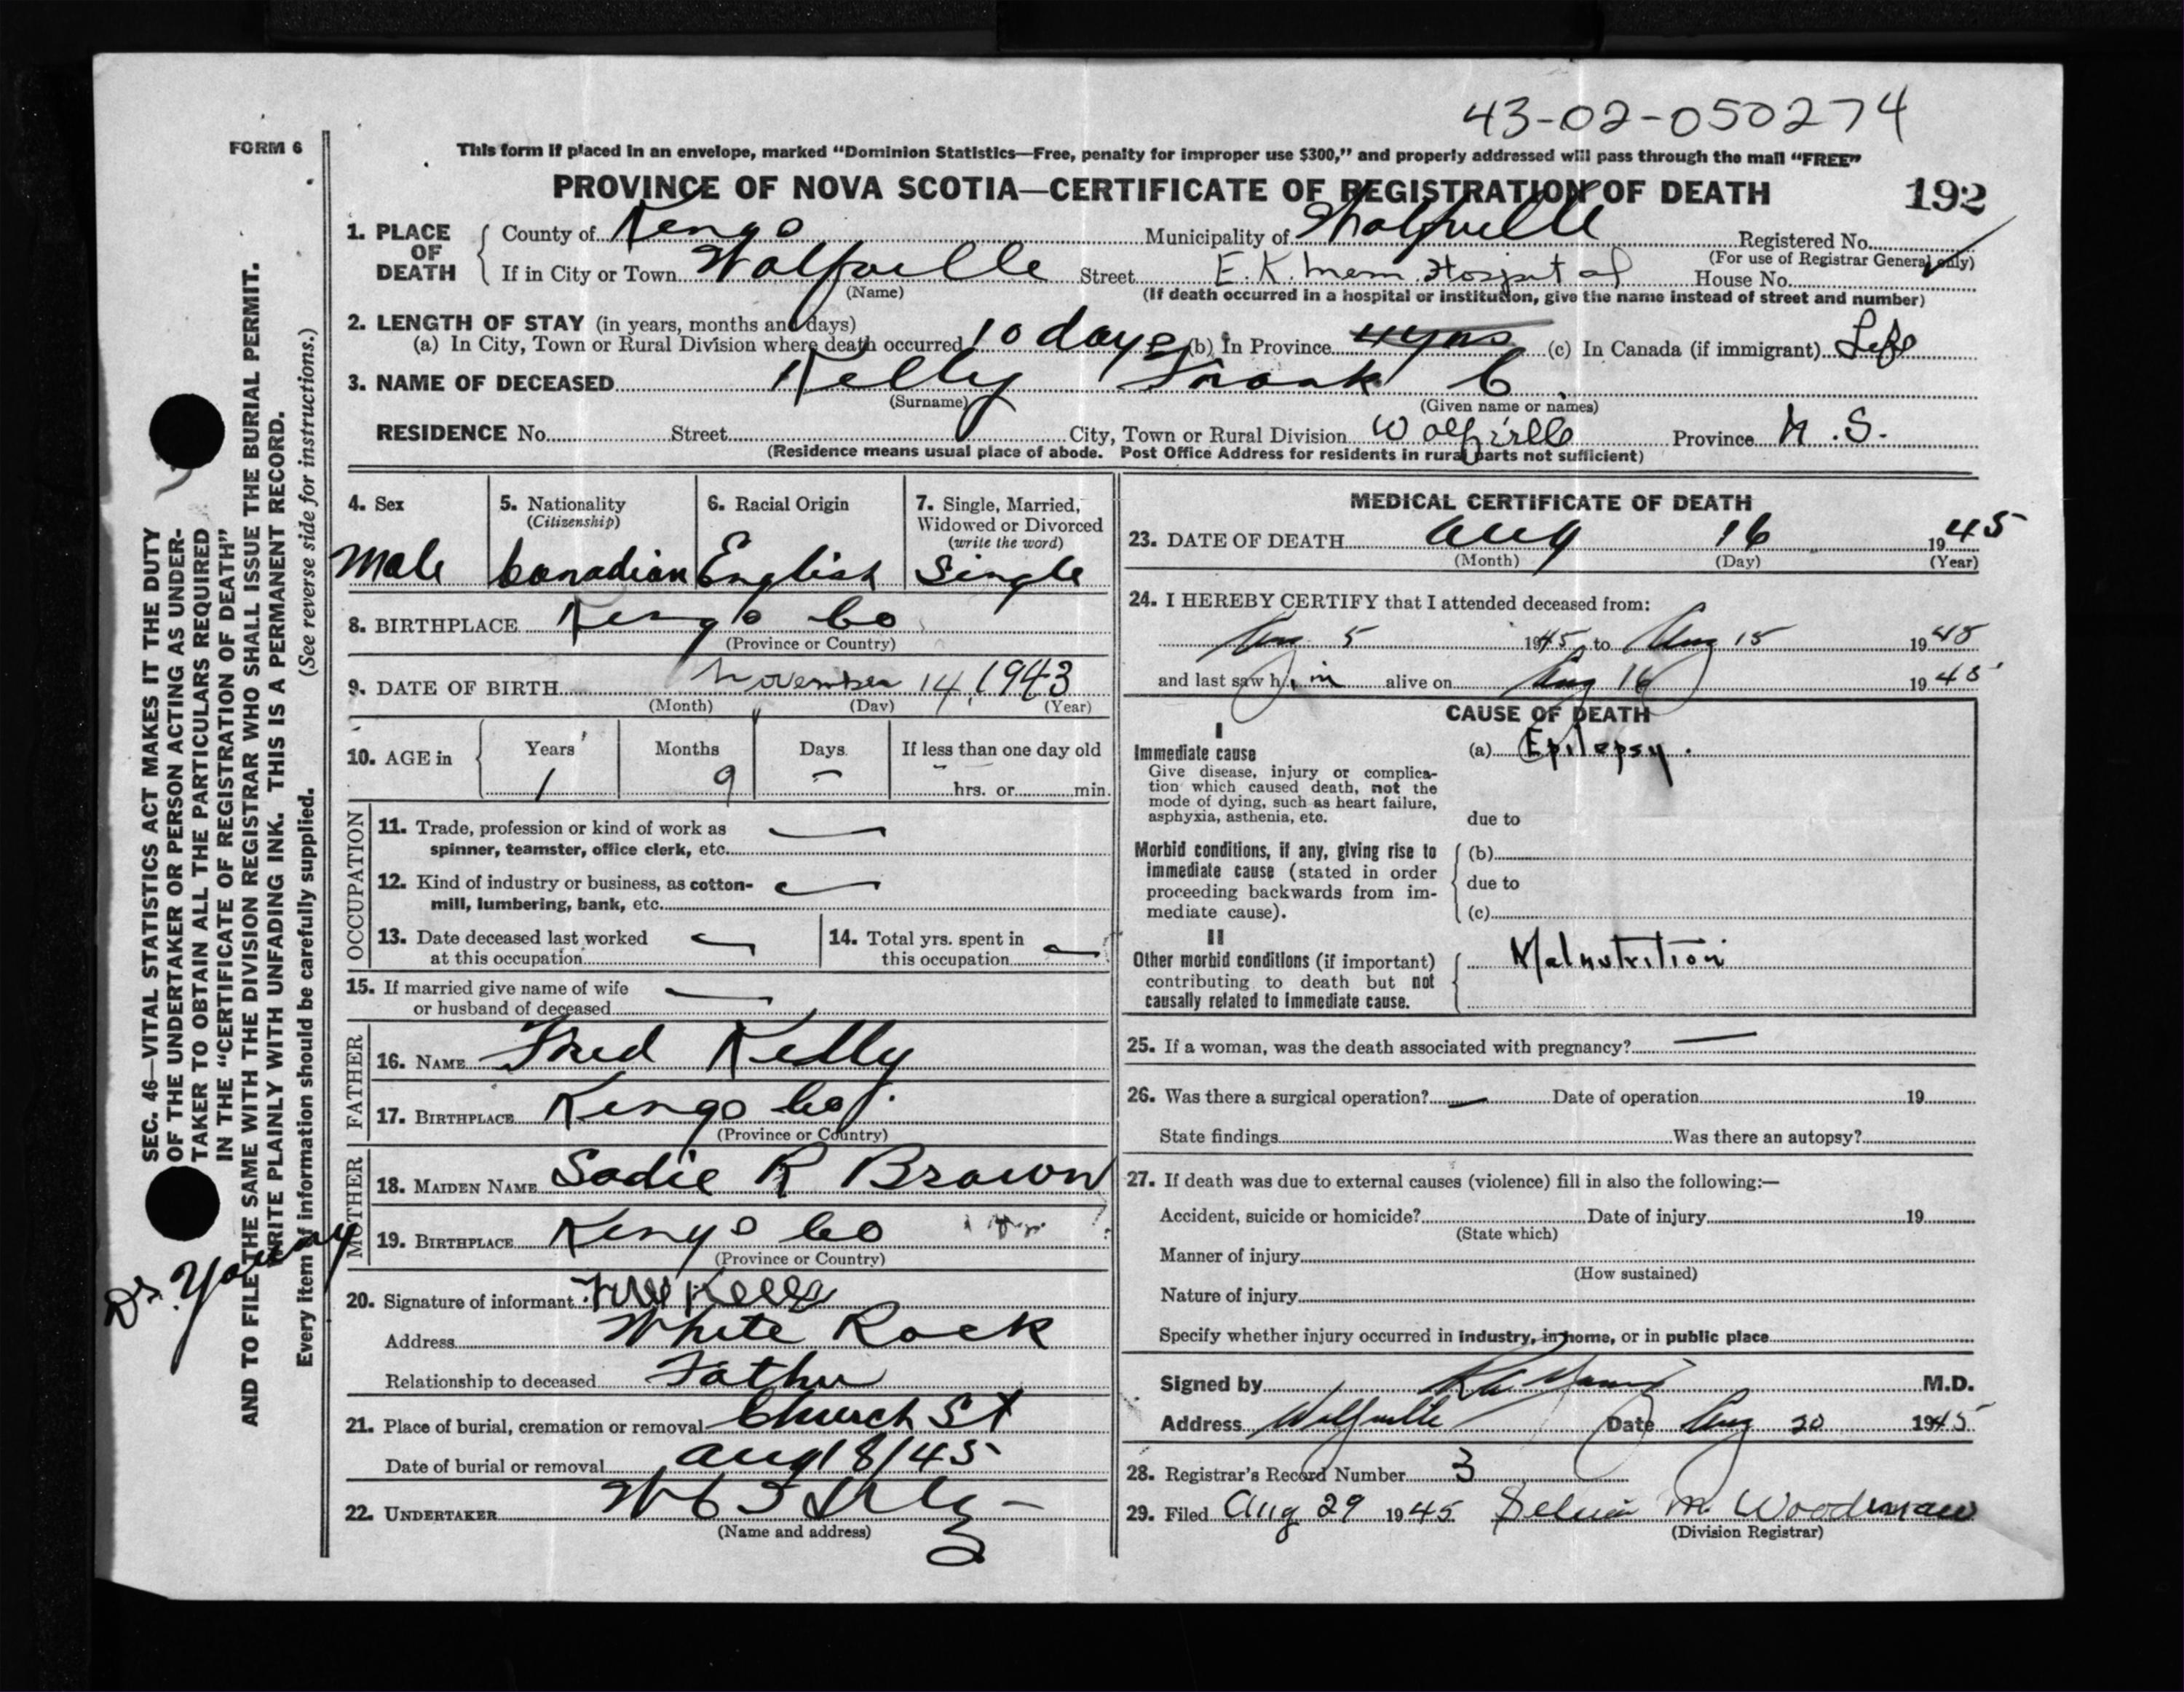 43-02-050274
FORM 6
This form if placed in an envelope, marked "Dominion Statistics—Free, penalty for improper use $300," and properly addressed will pass through the mail "FREE"
PROVINCE OF NOVA SCOTIA—CERTIFICATE OF REGISTRATION OF DEATH 192
1. PLACE OF DEATH { County of Kings Municipality of Wolfville Registered No.
(For use of Registrar General only)
If in City or Town Wolfville Street E. K. Mem. Hospital House No.
(Name) (If death occurred in a hospital or institution, give the name instead of street and number)
2. LENGTH OF STAY (in years, months and days)
(a) In City, Town or Rural Division where death occurred 10 days (b) In Province (c) In Canada (if immigrant) Life
3. NAME OF DECEASED Kelly Frank C.
(Surname) (Given name or names)
RESIDENCE No. Street City, Town or Rural Division Wolfville Province N.S.
(Residence means usual place of abode. Post Office Address for residents in rural parts not sufficient)
4. Sex
Male
5. Nationality
(Citizenship)
Canadian
6. Racial Origin
English
7. Single, Married,
Widowed or Divorced
(write the word)
Single
8. BIRTHPLACE Kings Co
(Province or Country)
9. DATE OF BIRTH November 14, 1943
(Month) (Day) (Year)
10. AGE in { Years Months Days If less than one day old
1 9 – hrs. or min.
OCCUPATION
11. Trade, profession or kind of work as —
spinner, teamster, office clerk, etc.
12. Kind of industry or business, as cotton- —
mill, lumbering, bank, etc.
13. Date deceased last worked —
at this occupation
14. Total yrs. spent in
this occupation —
15. If married give name of wife —
or husband of deceased
FATHER
16. NAME Fred Kelly
17. BIRTHPLACE Kings Co.
(Province or Country)
MOTHER
18. MAIDEN NAME Sadie R Brown
19. BIRTHPLACE Kings Co
(Province or Country)
20. Signature of informant Fred Kelly
Address White Rock
Relationship to deceased Father
21. Place of burial, cremation or removal Church St
Date of burial or removal Aug 18/45
22. UNDERTAKER
(Name and address)
MEDICAL CERTIFICATE OF DEATH
23. DATE OF DEATH Aug 16 1945
(Month) (Day) (Year)
24. I HEREBY CERTIFY that I attended deceased from:
Aug 5 1945 to Aug 15 1945
and last saw him alive on Aug 16 1945
CAUSE OF DEATH
I
Immediate cause (a) Epilepsy.
Give disease, injury or complica-
tion which caused death, not the
mode of dying, such as heart failure,
asphyxia, asthenia, etc. due to
Morbid conditions, if any, giving rise to (b)
immediate cause (stated in order
proceeding backwards from im- due to
mediate cause). (c)
II
Other morbid conditions (if important) Malnutrition
contributing to death but not
causally related to immediate cause.
25. If a woman, was the death associated with pregnancy? —
26. Was there a surgical operation? — Date of operation 19
State findings Was there an autopsy?
27. If death was due to external causes (violence) fill in also the following:—
Accident, suicide or homicide? Date of injury 19
(State which)
Manner of injury
(How sustained)
Nature of injury
Specify whether injury occurred in industry, in home, or in public place
Signed by M.D.
Address Wolfville Date Aug 20 1945
28. Registrar's Record Number 3
29. Filed Aug 29 1945 M. Woodman
(Division Registrar)
SEC. 46—VITAL STATISTICS ACT MAKES IT THE DUTY
OF THE UNDERTAKER OR PERSON ACTING AS UNDER-
TAKER TO OBTAIN ALL THE PARTICULARS REQUIRED
IN THE "CERTIFICATE OF REGISTRATION OF DEATH"
AND TO FILE THE SAME WITH THE DIVISION REGISTRAR WHO SHALL ISSUE THE BURIAL PERMIT.
WRITE PLAINLY WITH UNFADING INK. THIS IS A PERMANENT RECORD.
Every item of information should be carefully supplied. (See reverse side for instructions.)
Dr. Young